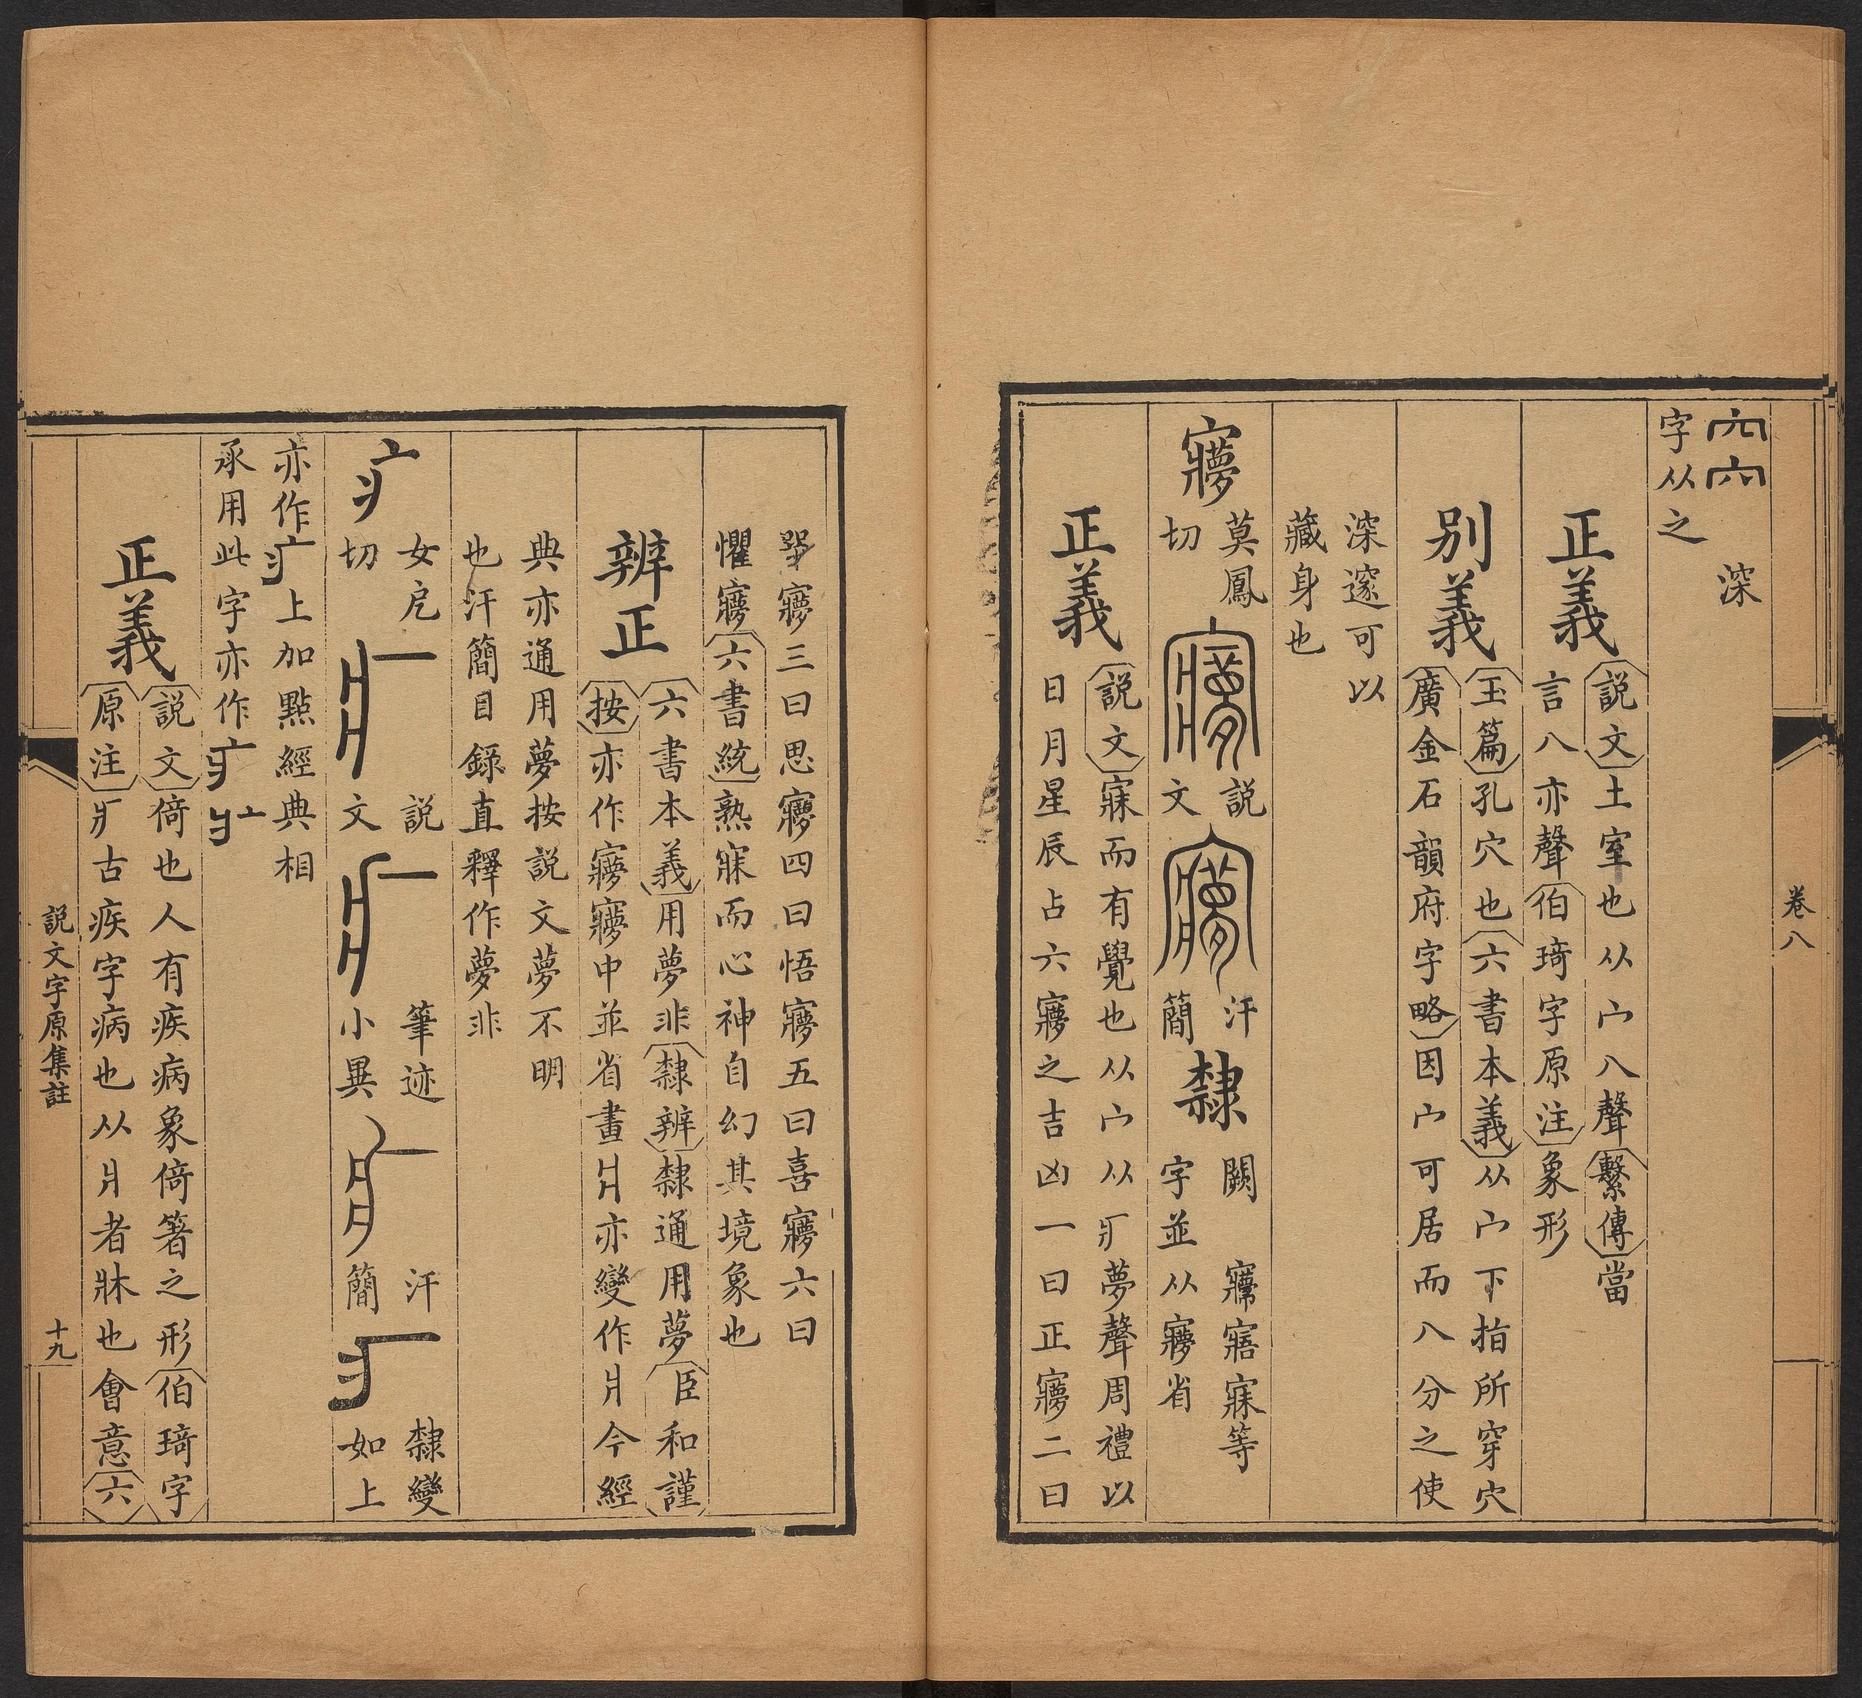 卷八
深
字从之
正義
説文土室也从宀八聲繫傳當
言八亦聲伯琦字原注象形
別義
玉篇孔穴也六書本義从宀下指所穿穴
廣金石韻府字略因宀可居而八分之使
深邃可以
藏身也
㝱
莫鳳
切
説
文
汗
簡
隸
闕
㝱寤寐等
字並从㝱省
正義
説文寐而有覺也从宀从疒夢聲周禮以
日月星辰占六㝱之吉凶一曰正㝱二曰
㖾㝱三曰思㝱四曰悟㝱五曰喜㝱六曰
懼㝱六書統熟寐而心神自幻其境象也
辨正
六書本義用夢非隸辨隸通用夢臣和謹
按亦作㝱㝱中並省畫爿亦變作丬今經
典亦通用夢按説文夢不明
也汗簡目錄直釋作夢非
疒
女戹
切
説
文
筆迹
小異
汗
簡
隸變
如上
亦作疒上加點經典相
承用此字亦作疒
正義
説文倚也人有疾病象倚箸之形伯琦字
原注疒古疾字病也从爿者牀也會意六
説文字原集註
十九